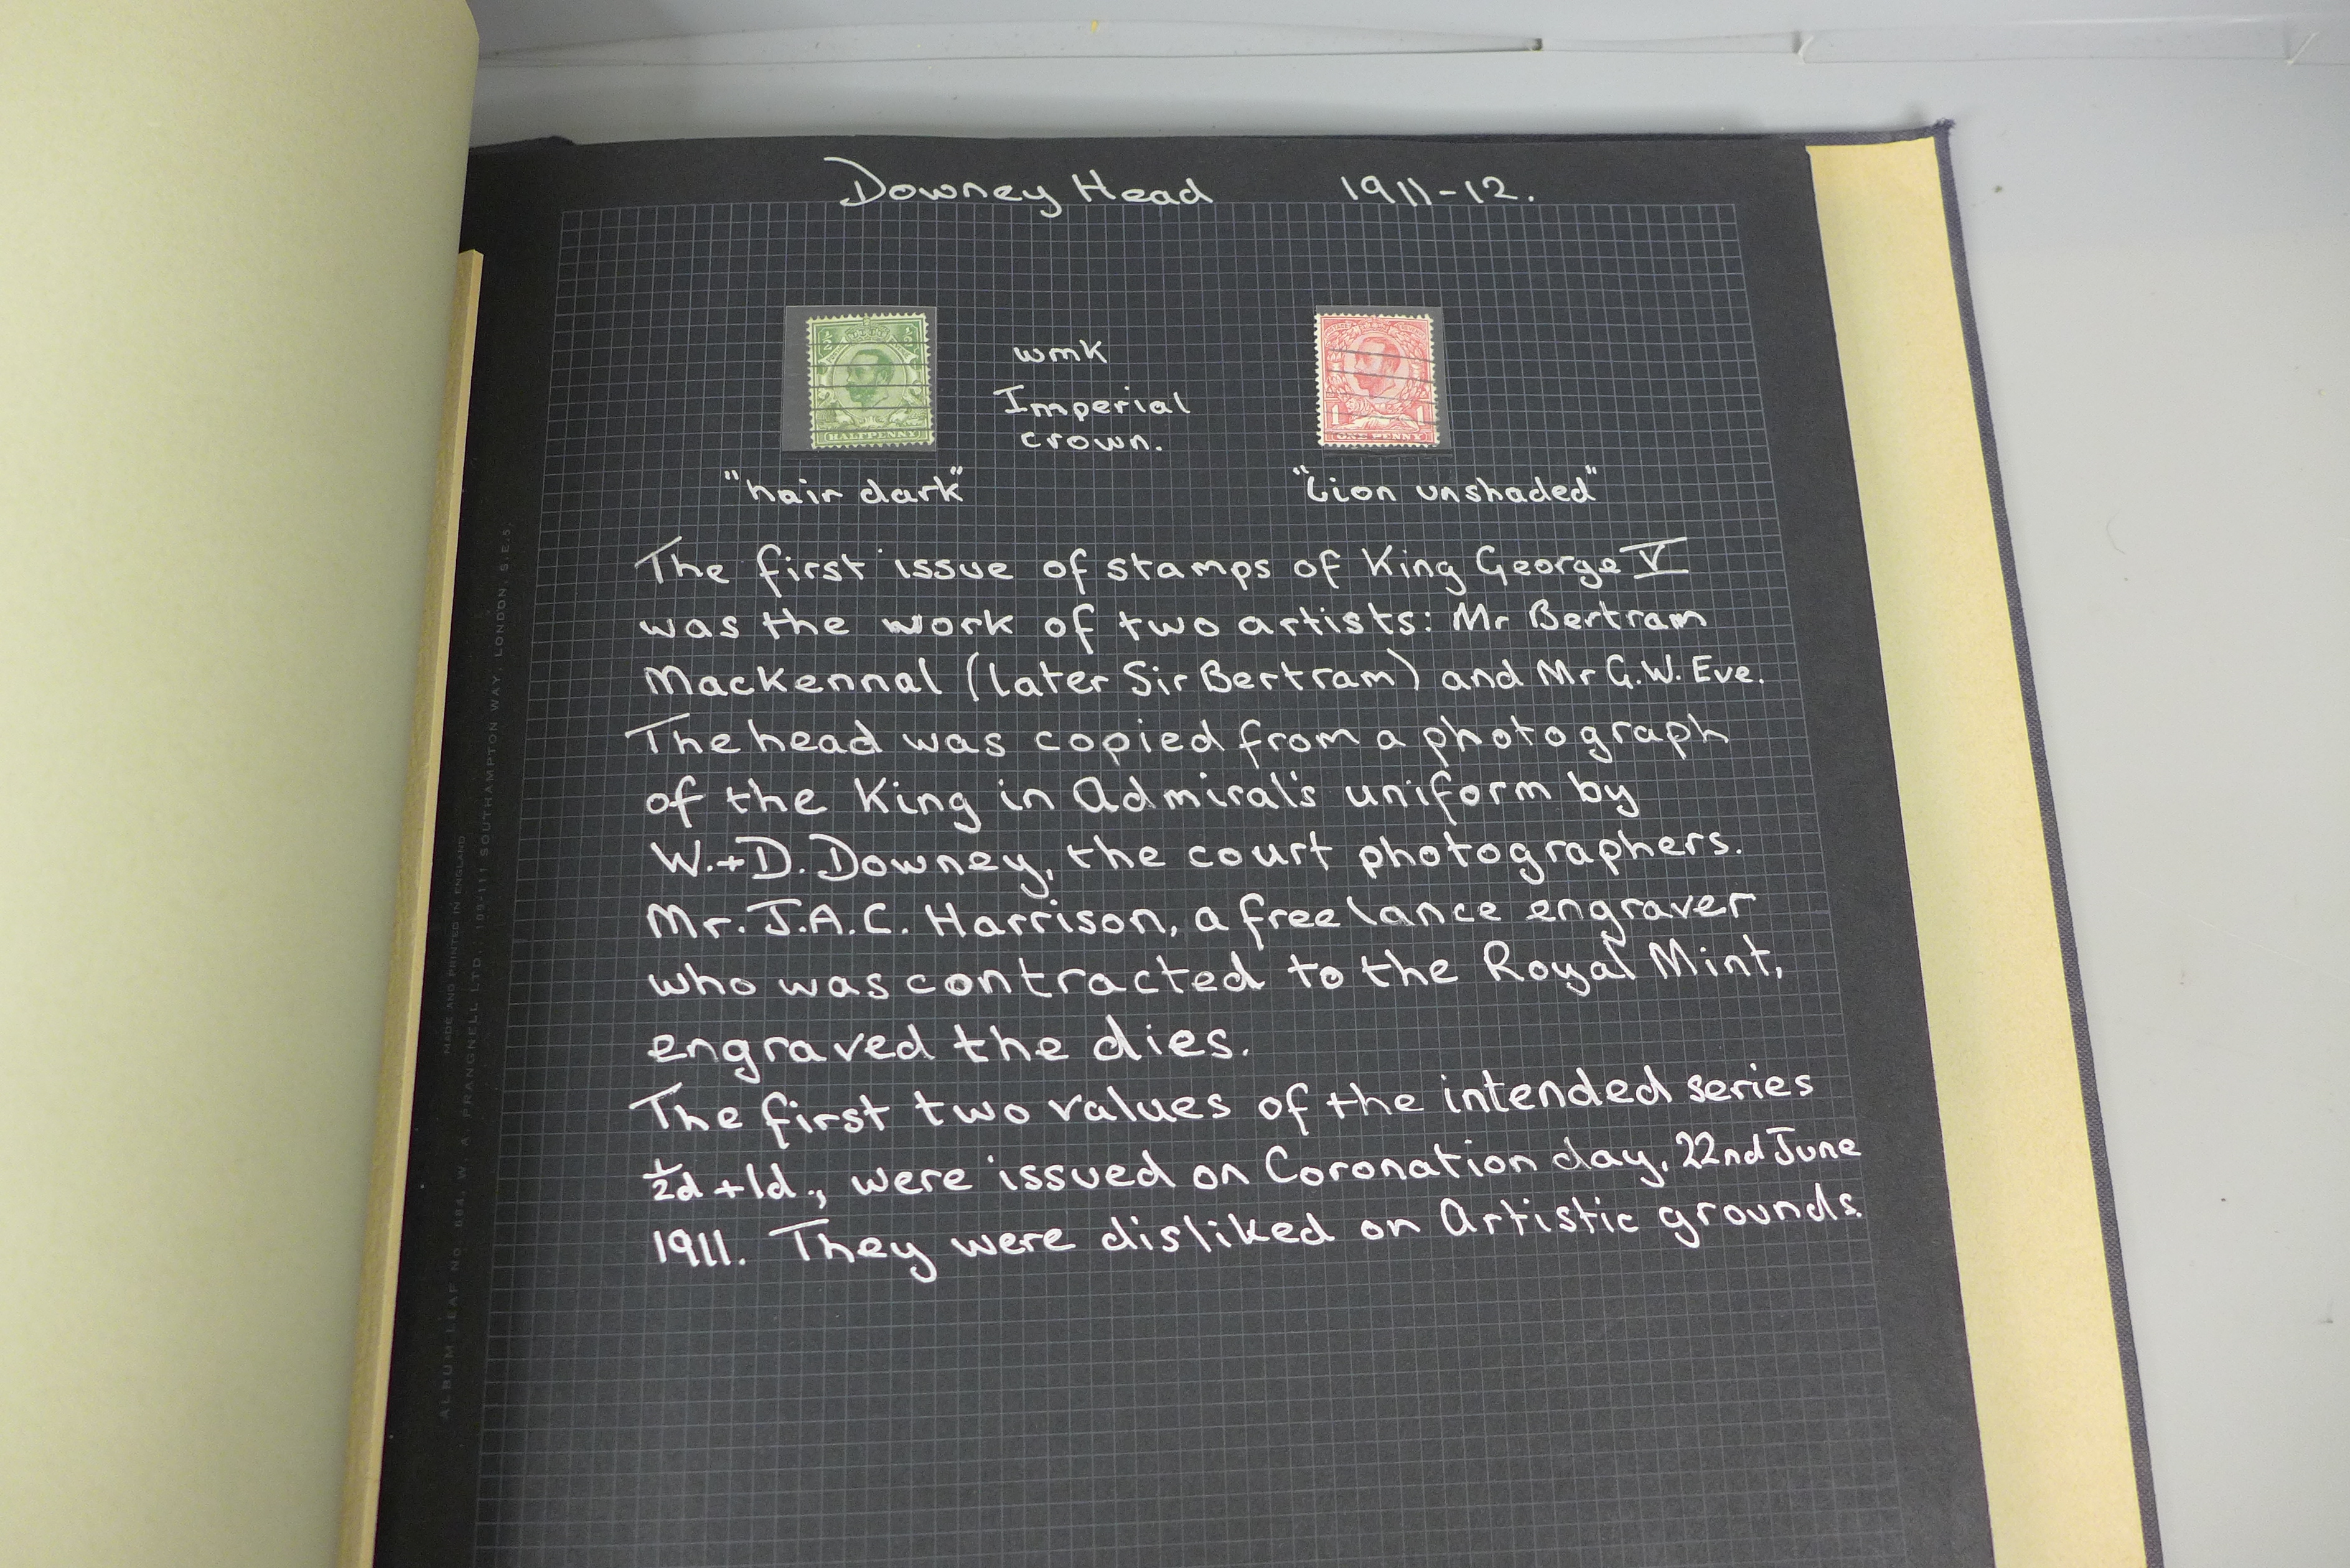 Downey Head 1911-12.
wmk
Imperial
crown.
HALFPENNY
1 1
ONE PENNY
"hair dark"
"Lion unshaded"
The first issue of stamps of King George V
was the work of two artists: Mr Bertram
Mackennal (later Sir Bertram) and Mr G.W. Eve.
The head was copied from a photograph
of the King in Admiral's uniform by
W.+D. Downey, the court photographers.
Mr. J.A.C. Harrison, a freelance engraver
who was contracted to the Royal Mint,
engraved the dies.
The first two values of the intended series
½d +1d., were issued on Coronation day, 22nd June
1911. They were disliked on Artistic grounds.
ALBUM LEAF NO. 684, W. A. PRANGNELL LTD.: 109-111 SOUTHAMPTON WAY, LONDON, S.E.5.
MADE AND PRINTED IN ENGLAND